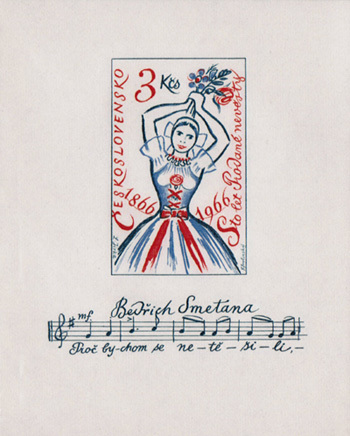 3 Kčs
ČESKOSLOVENSKO
1866
1966
Sto let Prodané nevěsty
Bedřich Smetana
mf
Proč by-chom se ne-tě-ši-li,-